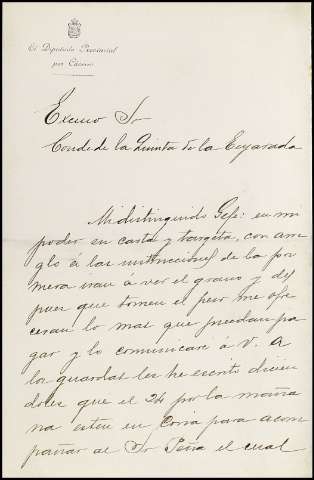 El Diputado Provincial
por Cáceres
Excmo Sr
Conde de la Quinta de la Enjarada
Mi distinguido Gefe: en mi
poder su carta y targeta, con arre
glo á las instrucciones de la pri
mera iran á ver el grano y des
pues que tomen el peso me ofre
ceran lo mas que puedan pa
gar y lo comunicaré á V. A
los guardas les he escrito dicien
doles que el 24 por la maña
na esten en Coria para acom
pañar al Sr Peña el cual